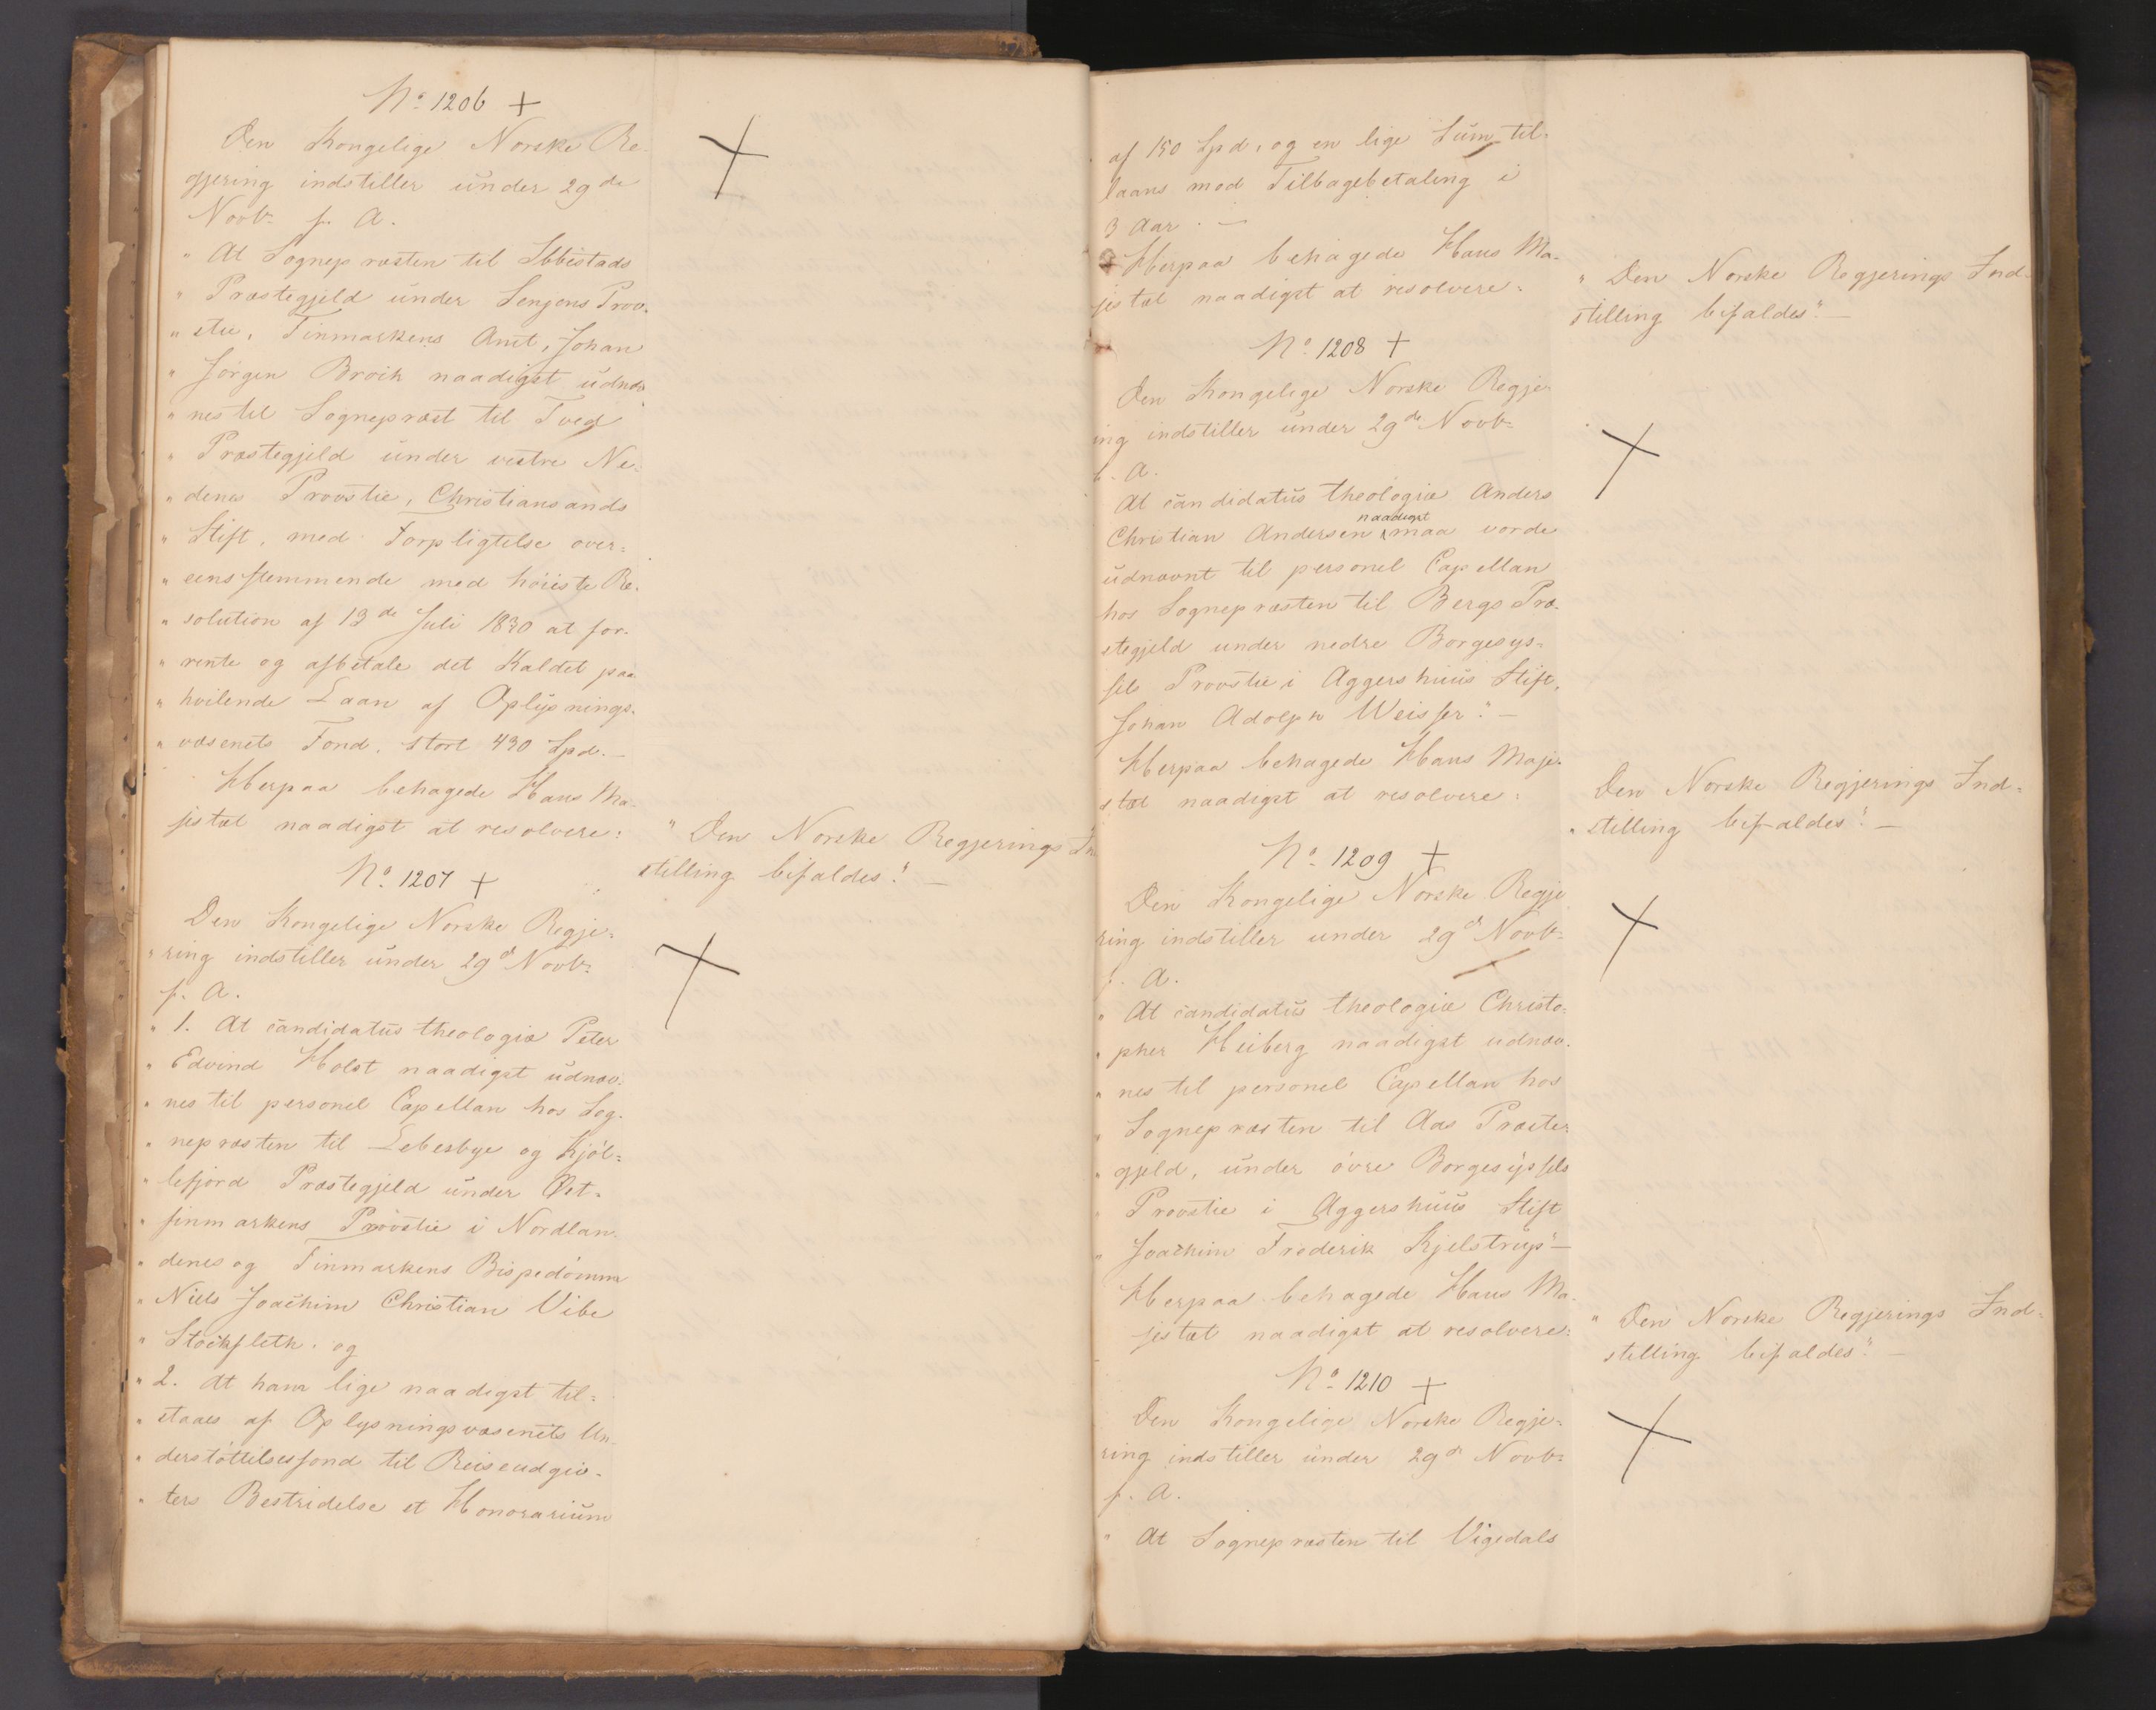 No 1206 +
Den Kongelige Norske Re-
gjering indstiller under 29de
Novbr f. A.
" At Sognepræsten til Ibbestads
" Præstegjeld under Senjens Prov-
" stie, Finmarkens Amt, Johan
" Jørgen Broch naadigst udnæv-
" nes til Sognepræst til Tved
" Præstegjeld under vestre Ne-
" denes Provstie, Christiansands
" Stift, med Forpligtelse over-
" eensstemmende med höieste Re-
" solution af 13de Juli 1830 at for-
" rente og afbetale det Kaldet paa-
" hvilende Laan af Oplysnings-
" væsenets Fond, stort 430 Spd. —
Herpaa behagede Hans Ma-
jestæt naadigst at resolvere:
" Den Norske Regjerings In
stilling bifaldes." —
No 1207 +
Den Kongelige Norske Regje-
ring indstiller under 29d Novbr
f. A.
" 1. At candidatus theologiæ Peter
" Edvind Holst naadigst udnæv-
" nes til personel Capellan hos Sog-
" nepræsten til Lebesbye og Kjöl-
" lefjord Præstegjeld under Øst-
" finmarkens Provstie i Nordlan-
" denes og Finmarkens Bispedömme
" Niels Joachim Christian Vibe
" Stockfleth. og
" 2. At ham lige naadigst til-
" staaes af Oplysningsvæsenets Un-
" derstöttelsesfond til Reiseudgiv-
" ters Bestridelse et Honorarium
af 150 Spd, og en lige Sum til-
laans mod Tilbagebetaling i
3 Aar. —
Herpaa behagede Hans Ma-
jestæt naadigst at resolvere:
" Den Norske Regjerings Ind-
stilling bifaldes." —
No 1208 +
Den Kongelige Norske Regje-
ing indstiller under 29de Novbr
f. A.
At candidatus theologiæ Anders
Christian Andersen naadigst maa vorde
udnævnt til personel Capellan
hos Sognepræsten til Bergs Præ-
stegjeld under nedre Borgesys-
sels Provstie i Aggershuus Stift,
Johan Adolph Weisser." —
Herpaa behagede Hans Maje-
stæt naadigst at resolvere:
Den Norske Regjerings Ind-
" stilling bifaldes." —
No 1209 +
Den Kongelige Norske Regje
ring indstiller under 29d Novbr
f. A.
" At candidatus theologiæ Christo-
" pher Heiberg naadigst udnæv-
" nes til personel Capellan hos
" Sognepræsten til Aas Præste-
" gjeld, under övre Borgesyssels
" Provstie i Aggershuus Stift
" Joachim Frederik Kjelstrup" —
Herpaa behagede Hans Ma-
jestæt naadigst at resolvere:
" Den Norske Regjerings Ind-
stilling bifaldes." —
No 1210 +
Den Kongelige Norske Regje-
ring indstiller under 29d Novbr
f. A.
" At Sognepræsten til Vigedals